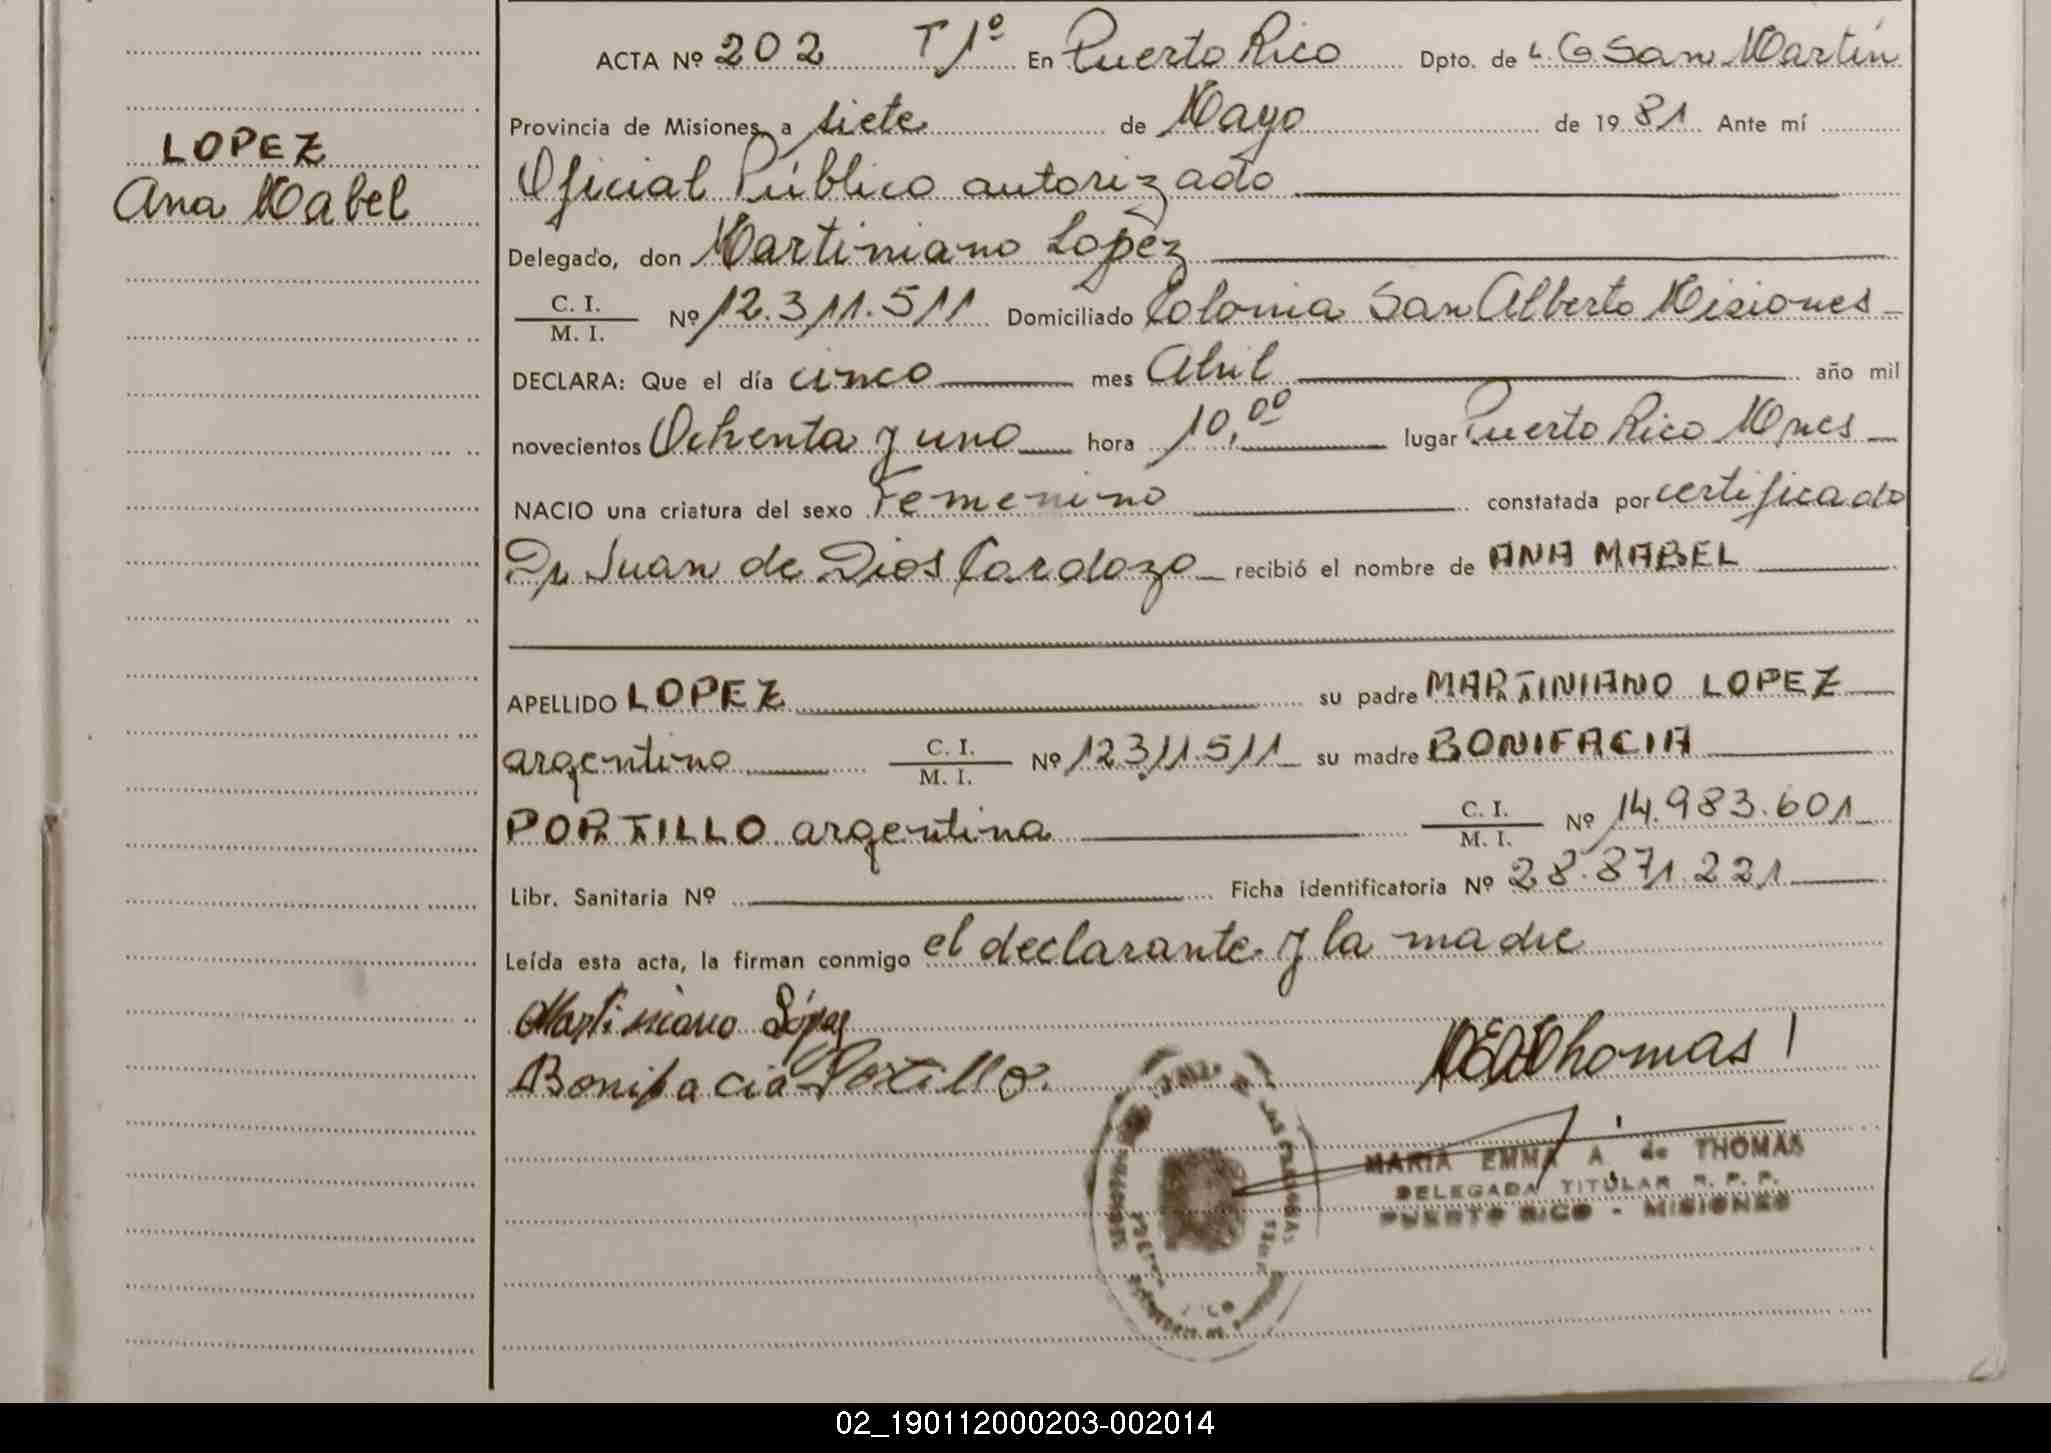 LOPEZ
Ana Mabel
ACTA Nº 202 T 1º En Puerto Rico Dpto. de L. G San Martín
Provincia de Misiones, a siete de Mayo de 19 81 Ante mí
Oficial Público autorizado
Delegado, don Martiniano Lopez
C. I.
M. I. Nº 12.311.511 Domiciliado Colonia San Alberto Misiones
DECLARA: Que el día cinco mes Abril año mil
novecientos Ochenta y uno hora 10,00 lugar Puerto Rico Mnes
NACIO una criatura del sexo Femenino constatada por certificado
Dr Juan de Dios Cardozo recibió el nombre de ANA MABEL
APELLIDO LOPEZ su padre MARTINIANO LOPEZ
argentino C. I.
M. I. Nº 12311.511 su madre BONIFACIA
PORTILLO argentina C. I.
M. I. Nº 14.983.601
Libr. Sanitaria Nº Ficha identificatoria Nº 28.871.221
Leída esta acta, la firman conmigo el declarante y la madre
Martiniano López
Bonifacia Portillo
Thomas
MARIA EMMA A. de THOMAS
DELEGADA TITULAR R. P. P.
PUERTO RICO - MISIONES
02_190112000203-002014